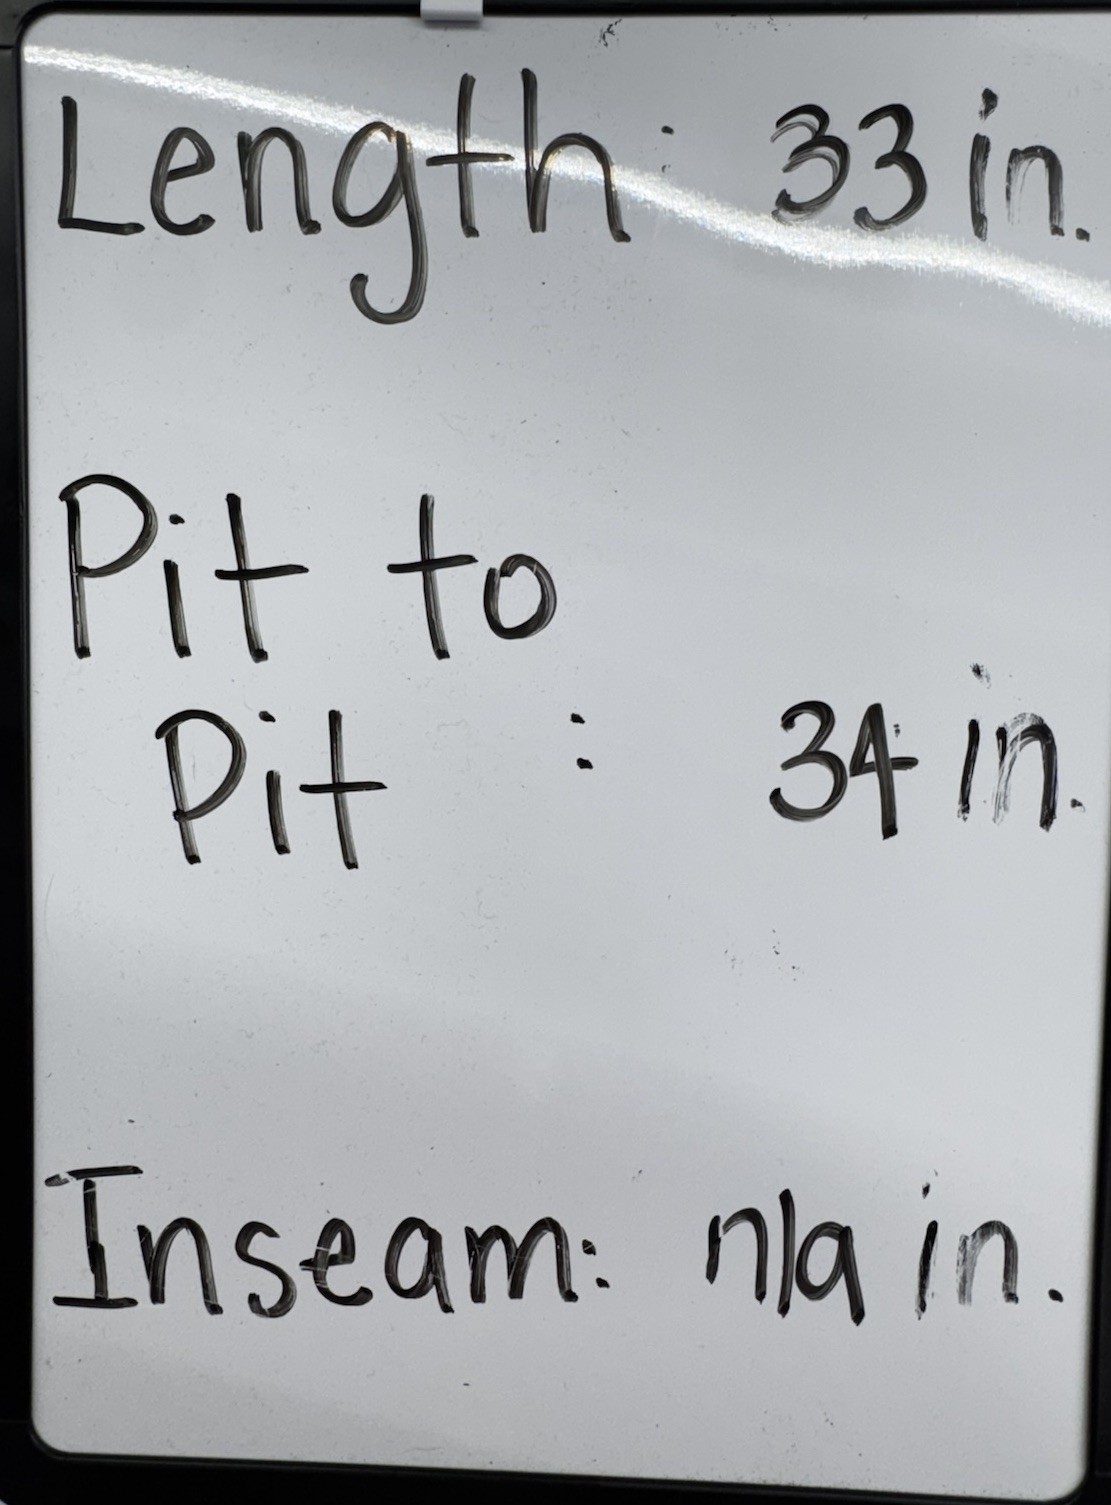 Length: 33 in.
Pit to
Pit : 34 in.
Inseam: n/a in.